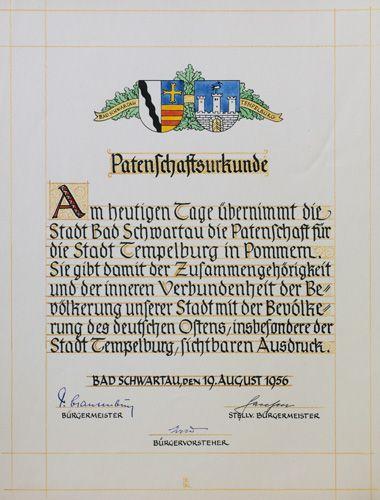 BAD SCHWARTAU TEMPELBURG
Patenschaftsurkunde
Am heutigen Tage übernimmt die
Stadt Bad Schwartau die Patenschaft für
die Stadt Tempelburg in Pommern.
Sie gibt damit der Zusammengehörigkeit
und der inneren Verbundenheit der Be=
völkerung unserer Stadt mit der Bevölke=
rung des deutschen Ostens, insbesondere der
Stadt Tempelburg, sichtbaren Ausdruck.
BAD SCHWARTAU, DEN 19. AUGUST 1956
BÜRGERMEISTER STELLV. BÜRGERMEISTER
BÜRGERVORSTEHER